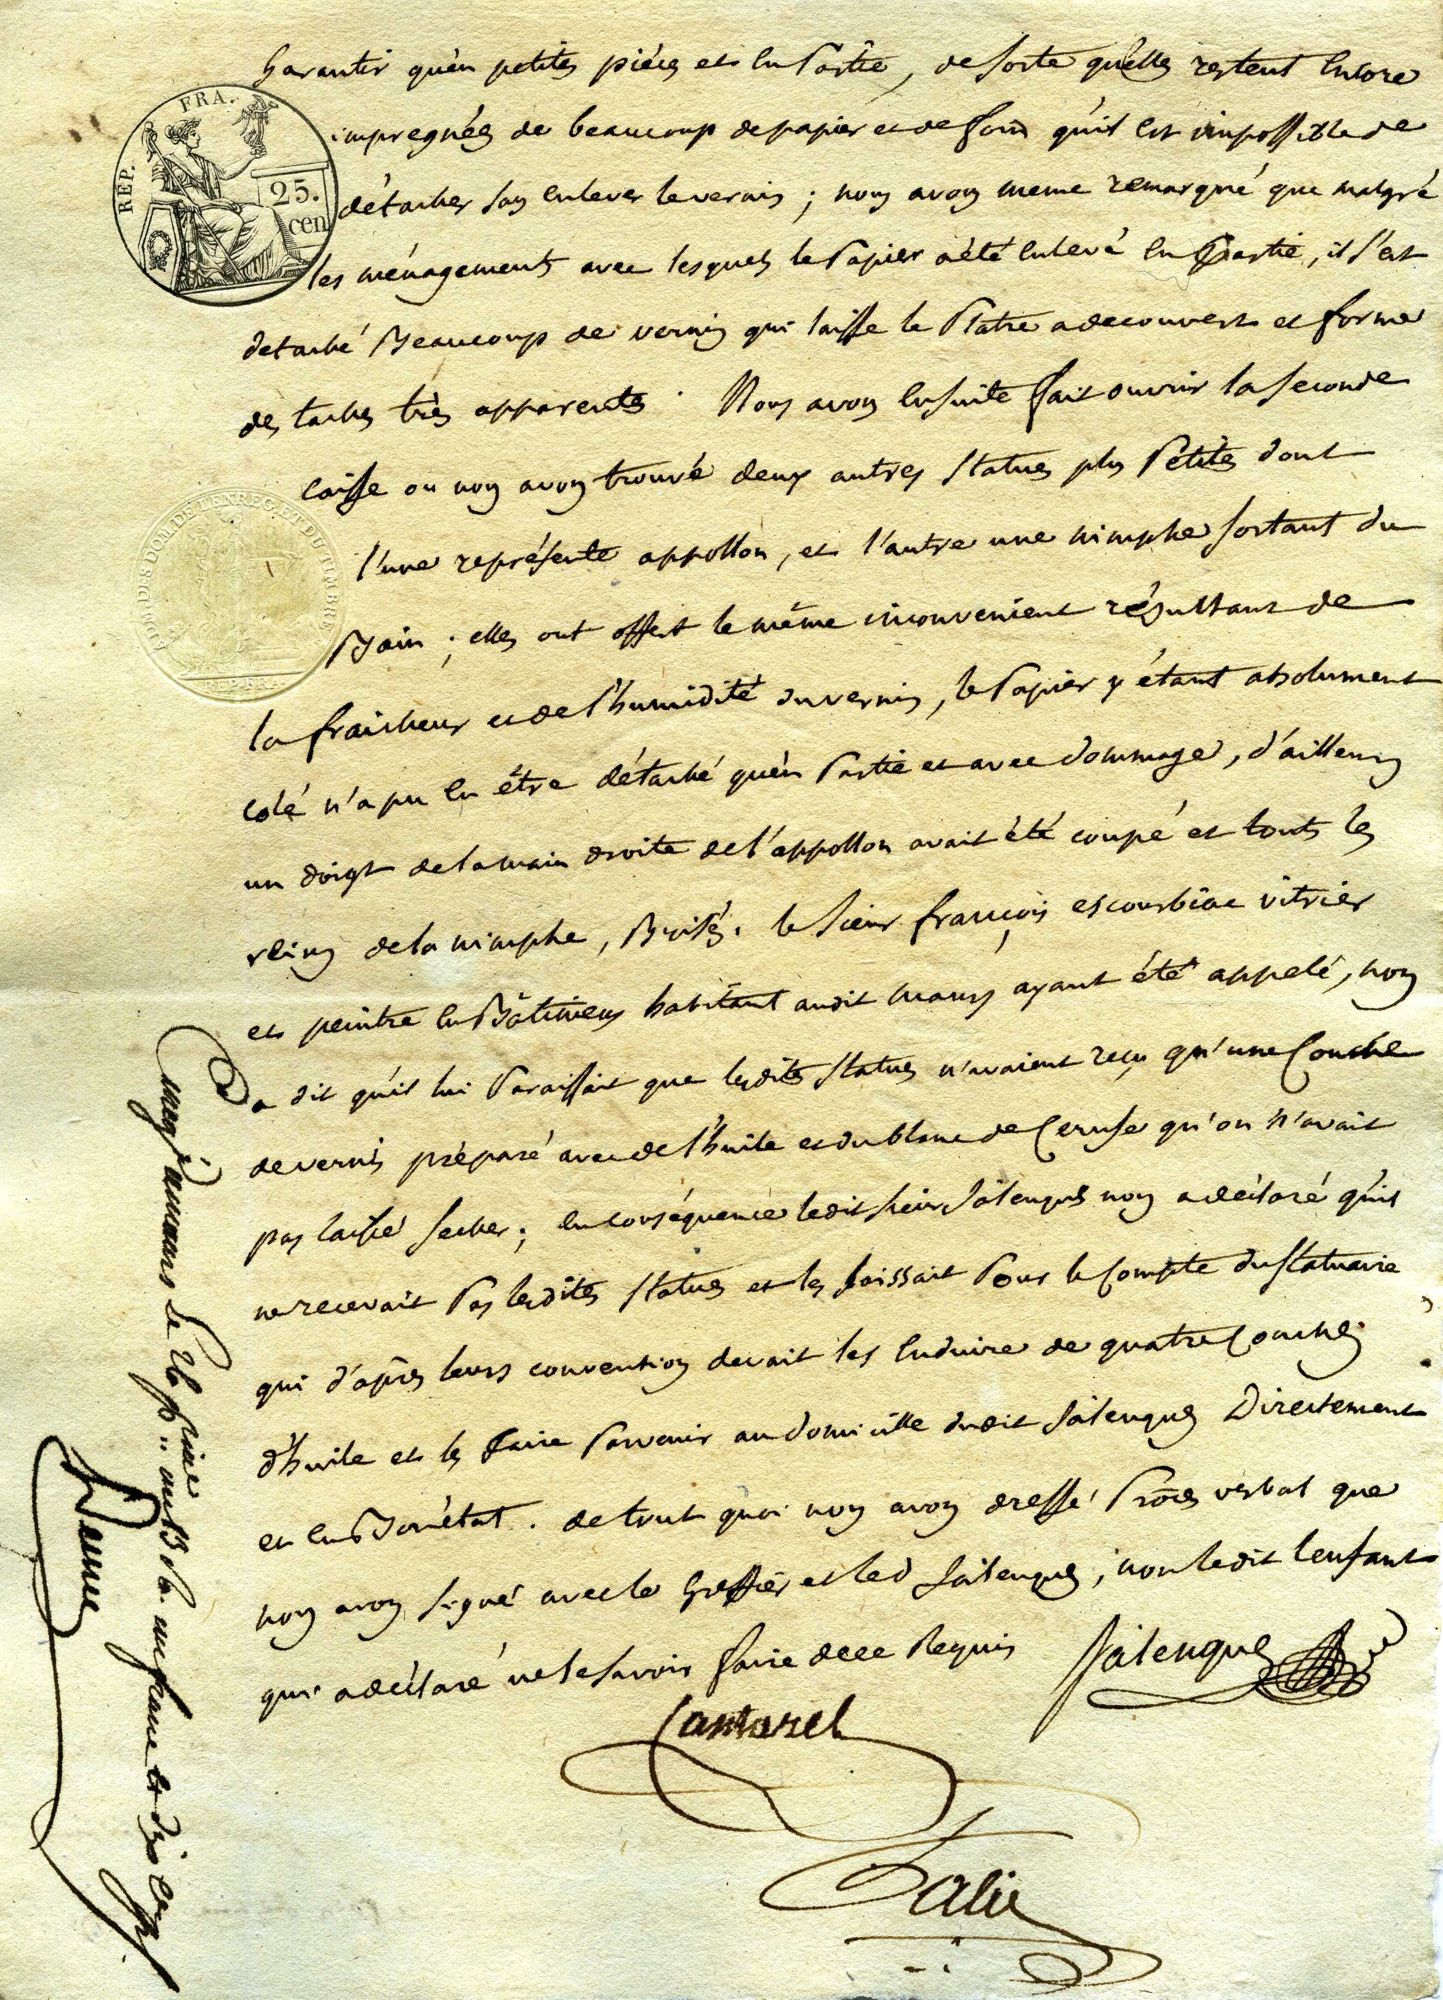 REP. FRA.
25.
cen
ADM. DES DOM. DE L'ENREG. ET DU TIMBRE
REP. FRA.
garantir qu'en petites pièces et en Partie, de sorte qu'elles restent encore
impregnées de beaucoup de papier et de foin qu'il est impossible de
détacher sans enlever le vernis ; nous avons meme remarqué que malgré
les ménagements avec lesquels le Papier a été enlevé en Partie, il s'est
detaché Beaucoup de vernis qui laisse le Platre a decouvert et forme
des taches très apparentes. Nous avons ensuite fait ouvrir la seconde
caisse ou nous avons trouvé deux autres statues plus Petites dont
l'une représente appollon, et l'autre une nimphe sortant du
Bain ; elles ont offert le même inconvenient résultant de
la fraicheur et de l'humidité du vernis, le Papier y étant absolument
colé n'a pu en être détaché qu'en Partie et avec dommage, d'ailleurs
un doigt de la main droite de l'appollon avait été coupé et touts les
reins de la nimphe, Brisés. le sieur françois escourbiac vitrier
et peintre en Bâtimens habitant audit ayant été appelé, nous
a dit qu'il lui Paraissait que lesdites statues n'avaient reçu qu'une Couche
de vernis préparé avec de l'huile et du blanc de Ceruse qu'on n'avait
pas laissé secher ; en conséquence ledit sieur Salenques nous a déclaré qu'il
ne recevait Pas lesdites statues et les laissait Pour le Compte du Statuaire
qui d'après leurs conventions devait les Enduire de quatre Couches
d'huile et les faire Parvenir au domicille dudit Salenques Directement
et en Bon état. de tout quoi nous avons dressé Procès verbal que
nous avons signé avec le Greffier et led Salenques ; non ledit Lenfant
qui a déclaré ne le savoir faire de ce Requis
Salenques
Cantarel
Falip